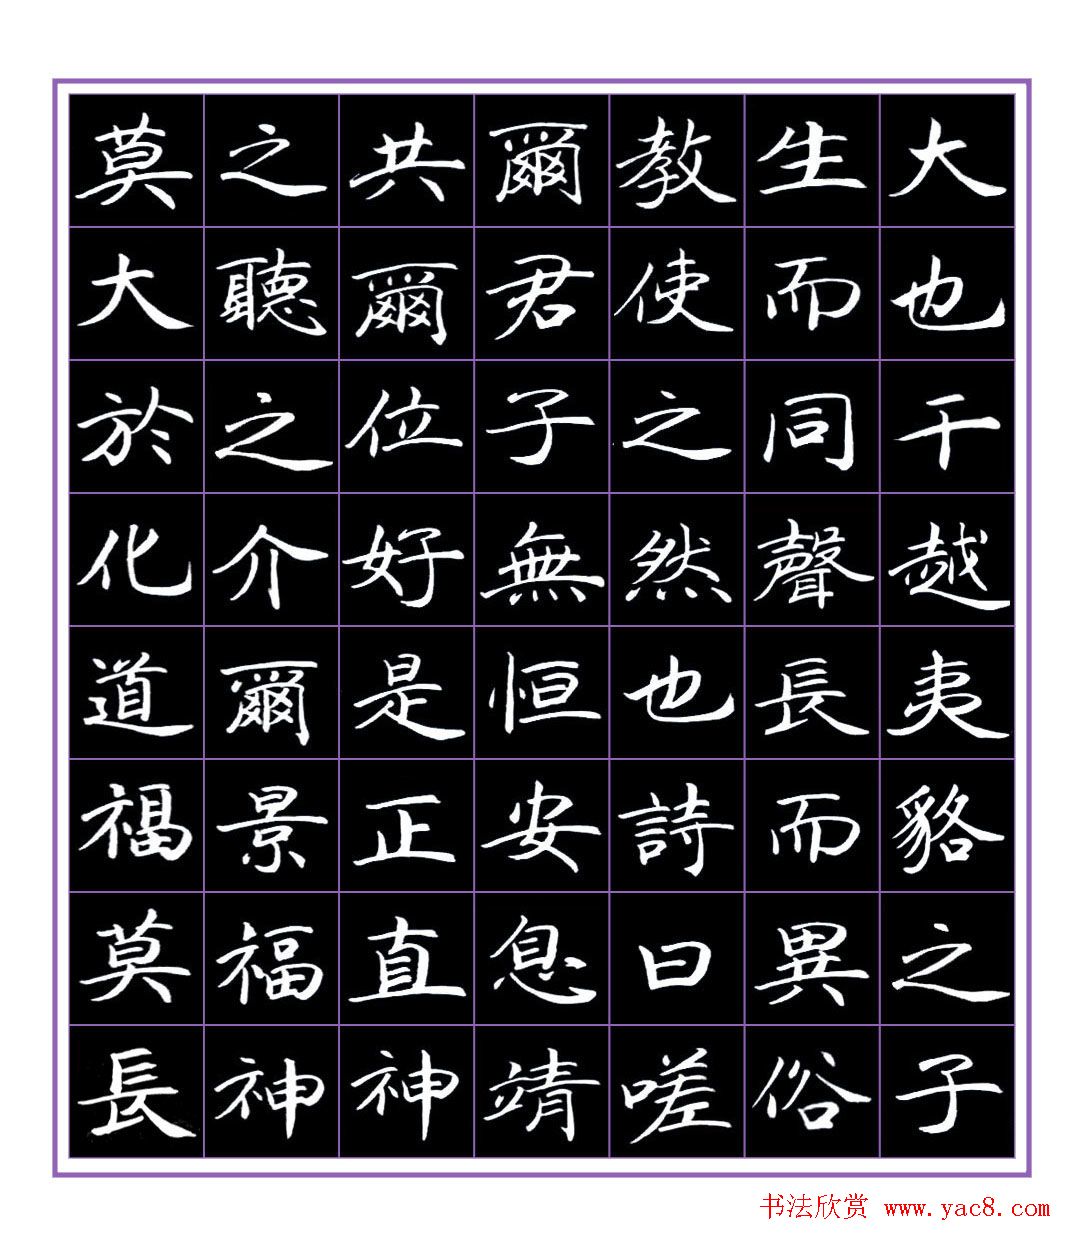 大也干越夷貉之子
生而同聲長而異俗
教使之然也詩曰嗟
爾君子無恒安息靖
共爾位好是正直神
之聽之介爾景福神
莫大於化道福莫長
书法欣赏 www.yac8.com